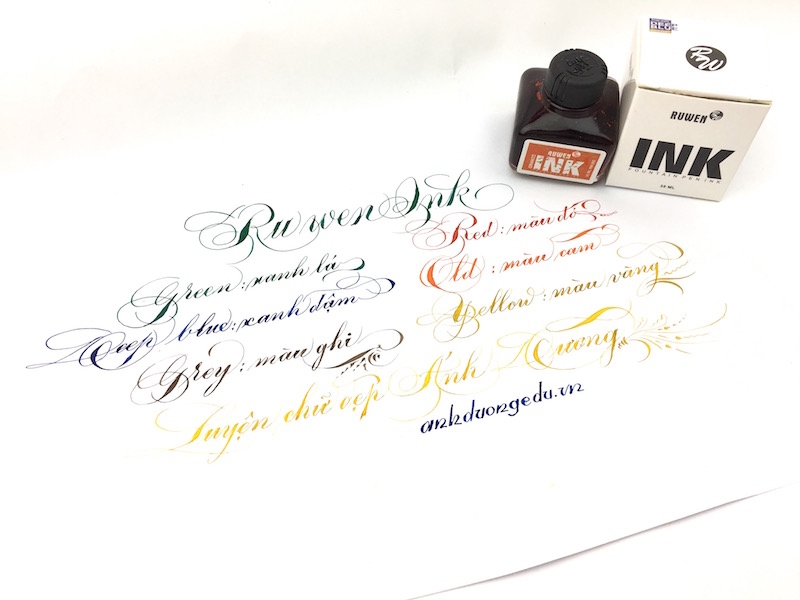 RW
RUWEN
INK
FOUNTAIN PEN INK
RUWEN
INK
Ruwen Ink
Green: xanh lá
Deep blue: xanh đậm
Grey: màu ghi
Red: màu đỏ
Old: màu cam
Yellow: màu vàng
Luyện chữ đẹp Ánh Dương
anhduongedu.vn